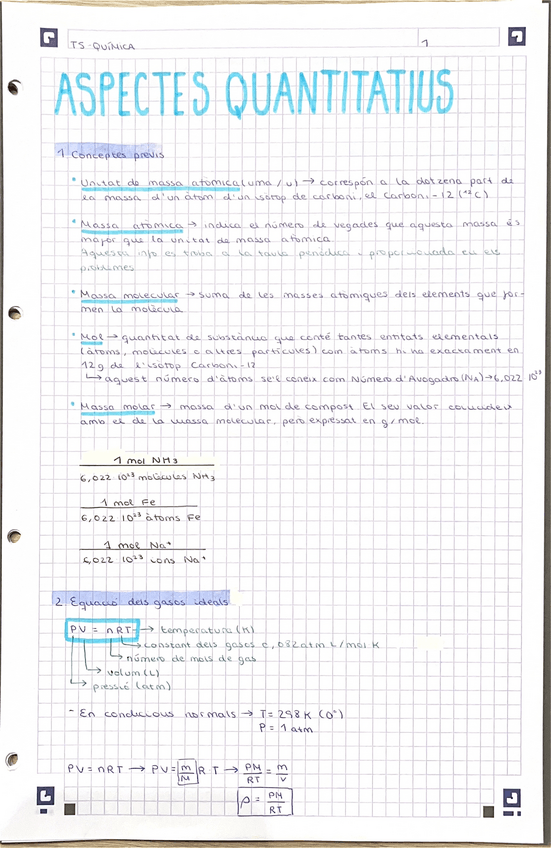 TS-QUÍMICA 1
ASPECTES QUANTITATIUS
1 Conceptes previs
* Unitat de massa atòmica (uma/u) → correspón a la dotzena part de
la massa d'un àtom d'un isòtop de carboni, el Carboni-12 (¹²C)
* Massa atòmica → indica el número de vegades que aquesta massa és
major que la unitat de massa atòmica
Aquesta info es troba a la taula periòdica i proporcionada en els
problemes
* Massa molecular → suma de les masses atòmiques dels elements que for-
men la molècula
* Mol → quantitat de substància que conté tantes entitats elementals
(àtoms, molècules o altres partícules) com àtoms hi ha exactament en
12g de l'isòtop Carboni-12
↳ aquest número d'àtoms se'l coneix com Número d'Avogadro (NA) → 6,022 10²³
* Massa molar → massa d'un mol de compost El seu valor coincideix
amb el de la massa molecular, però expressat en g/mol.
1 mol NH₃
6,022 10²³ molècules NH₃
1 mol Fe
6,022 10²³ àtoms Fe
1 mol Na⁺
6,022 10²³ ions Na⁺
2 Equació dels gasos ideals
PV = nRT → temperatura (K)
→ constant dels gasos 0,082 atm L/mol K
→ número de mols de gas
→ volum (L)
→ pressió (atm)
- En condicions normals → T = 298 K (0°)
P = 1 atm
PV = nRT → PV = m/M R T → PM/RT = m/V
ρ = PM/RT